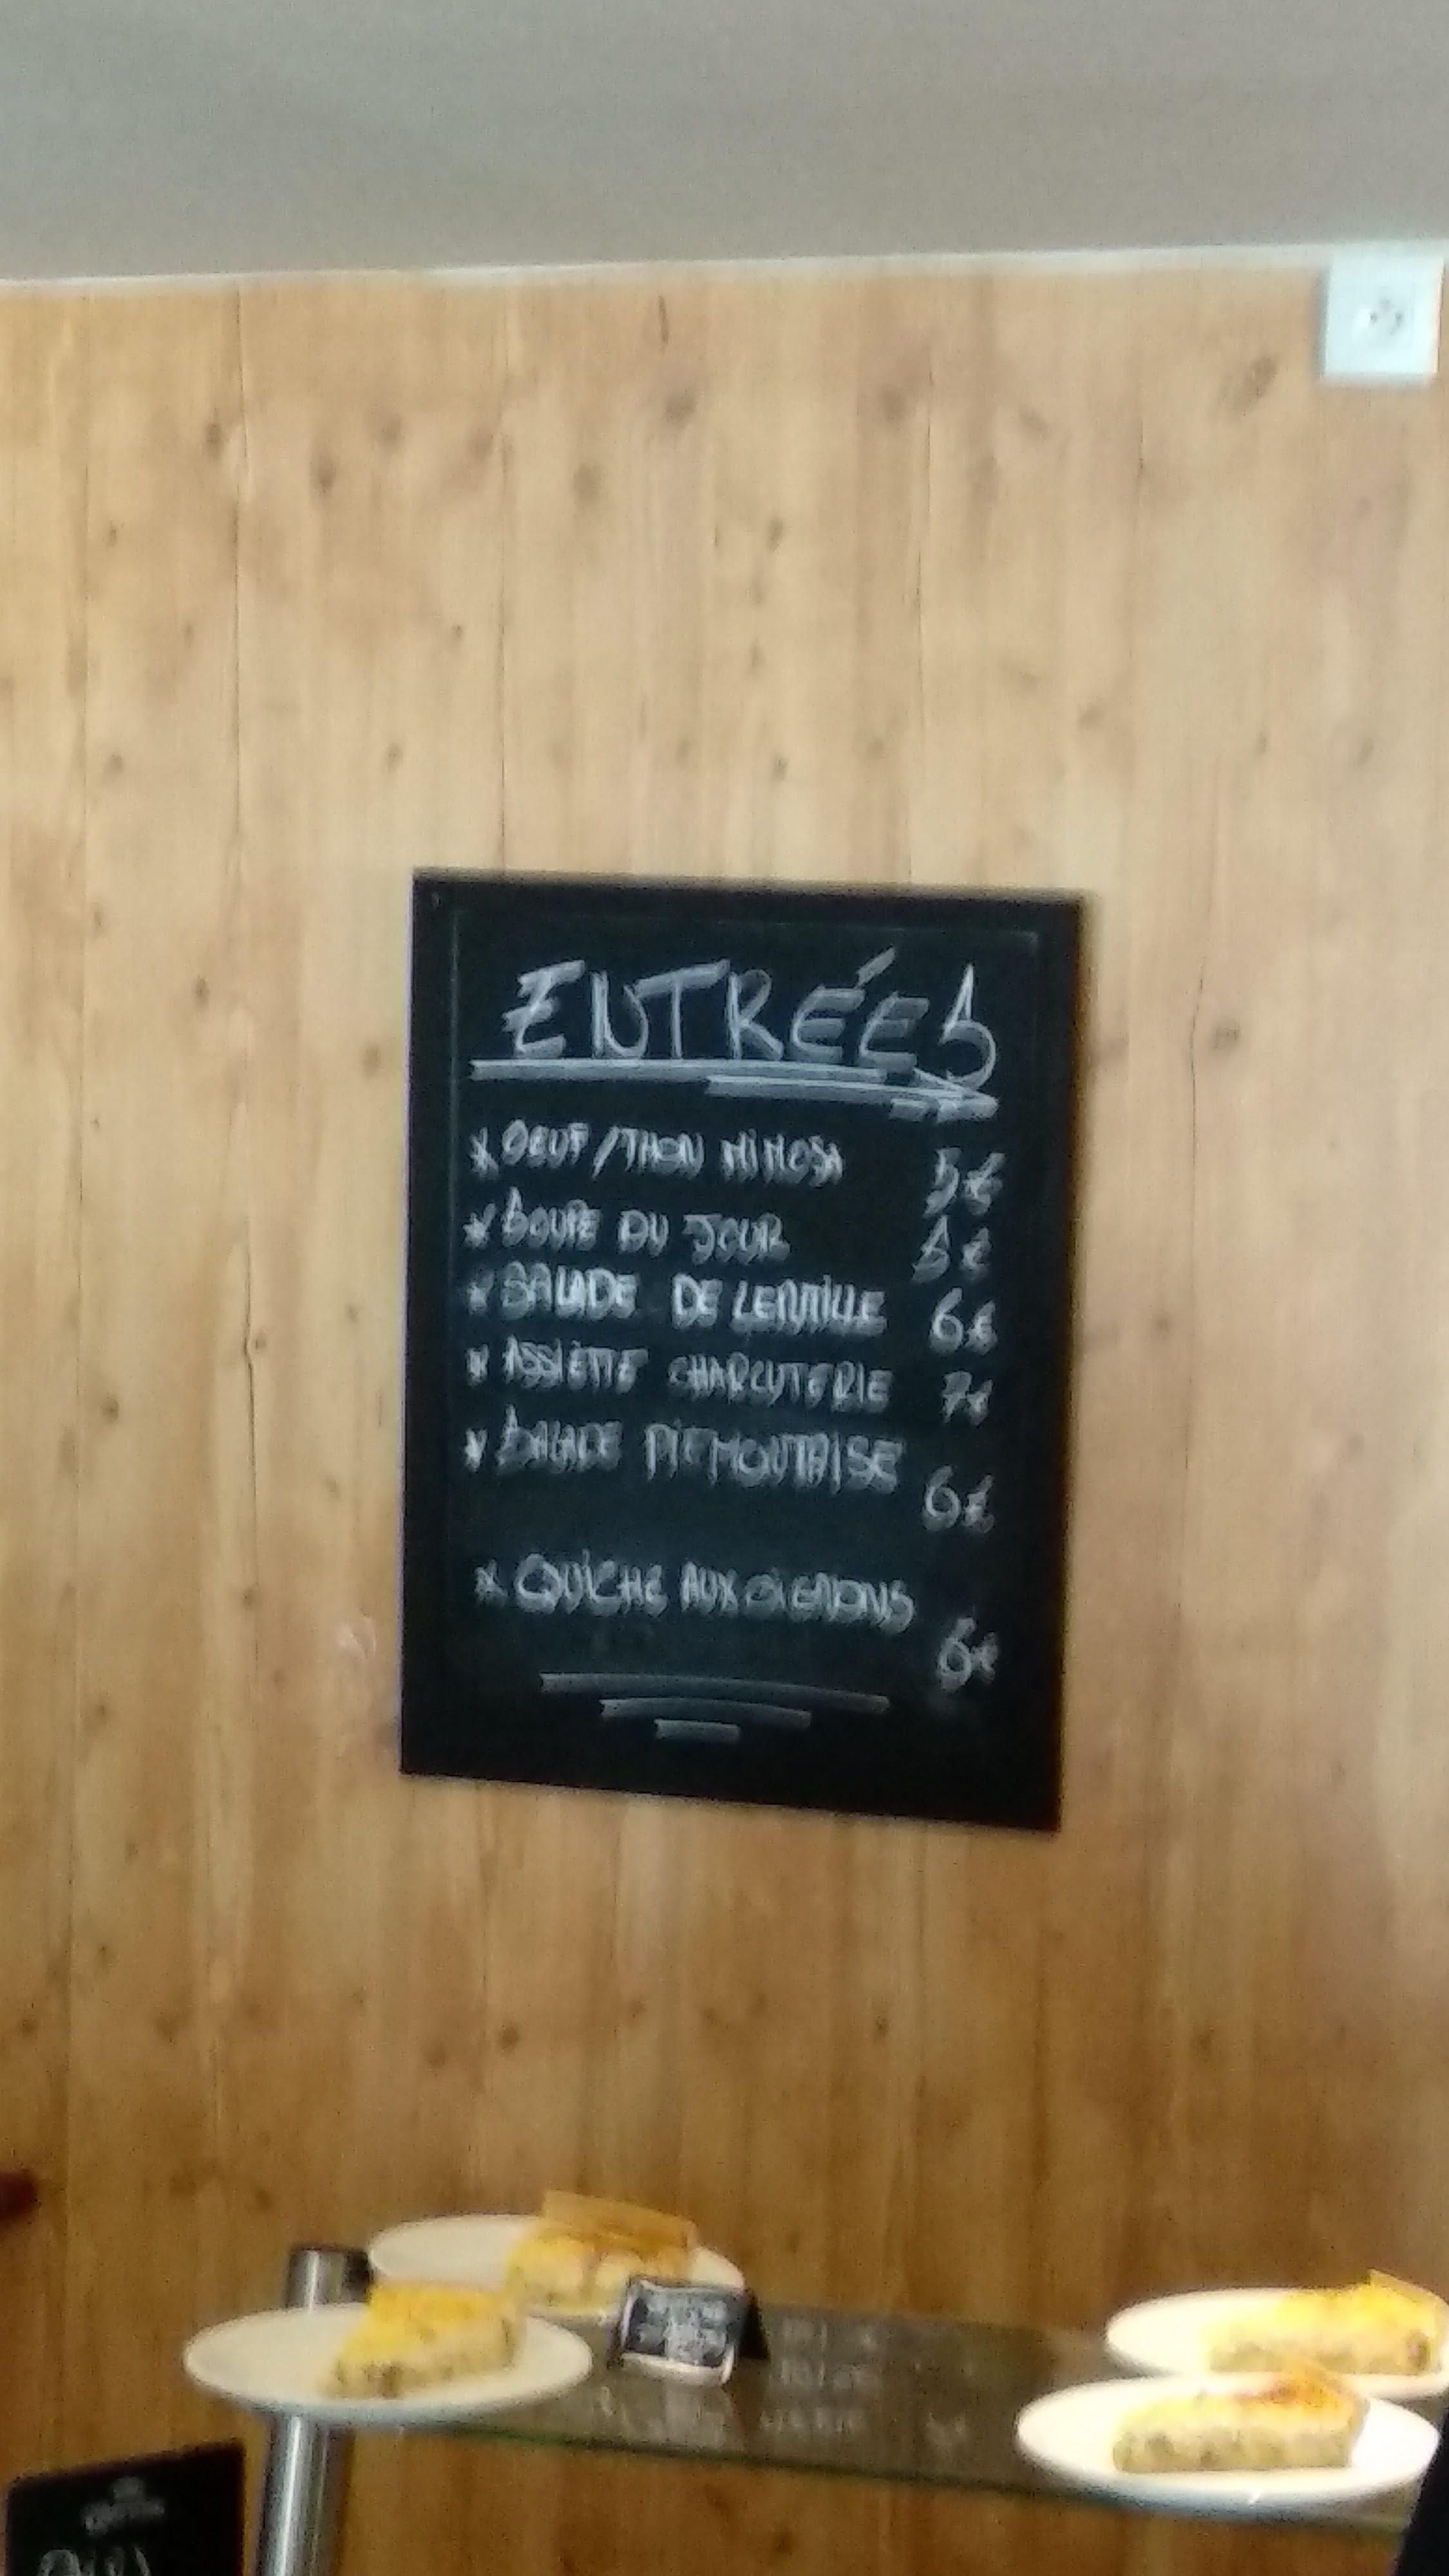 ENTRÉES
* OEUF / THON MIMOSA 5€
* SOUPE DU JOUR 5€
* SALADE DE LENTILLE 6€
* ASSIETTE CHARCUTERIE 7€
* SALADE PIEMONTAISE 6€
* QUICHE AUX OIGNONS 6€